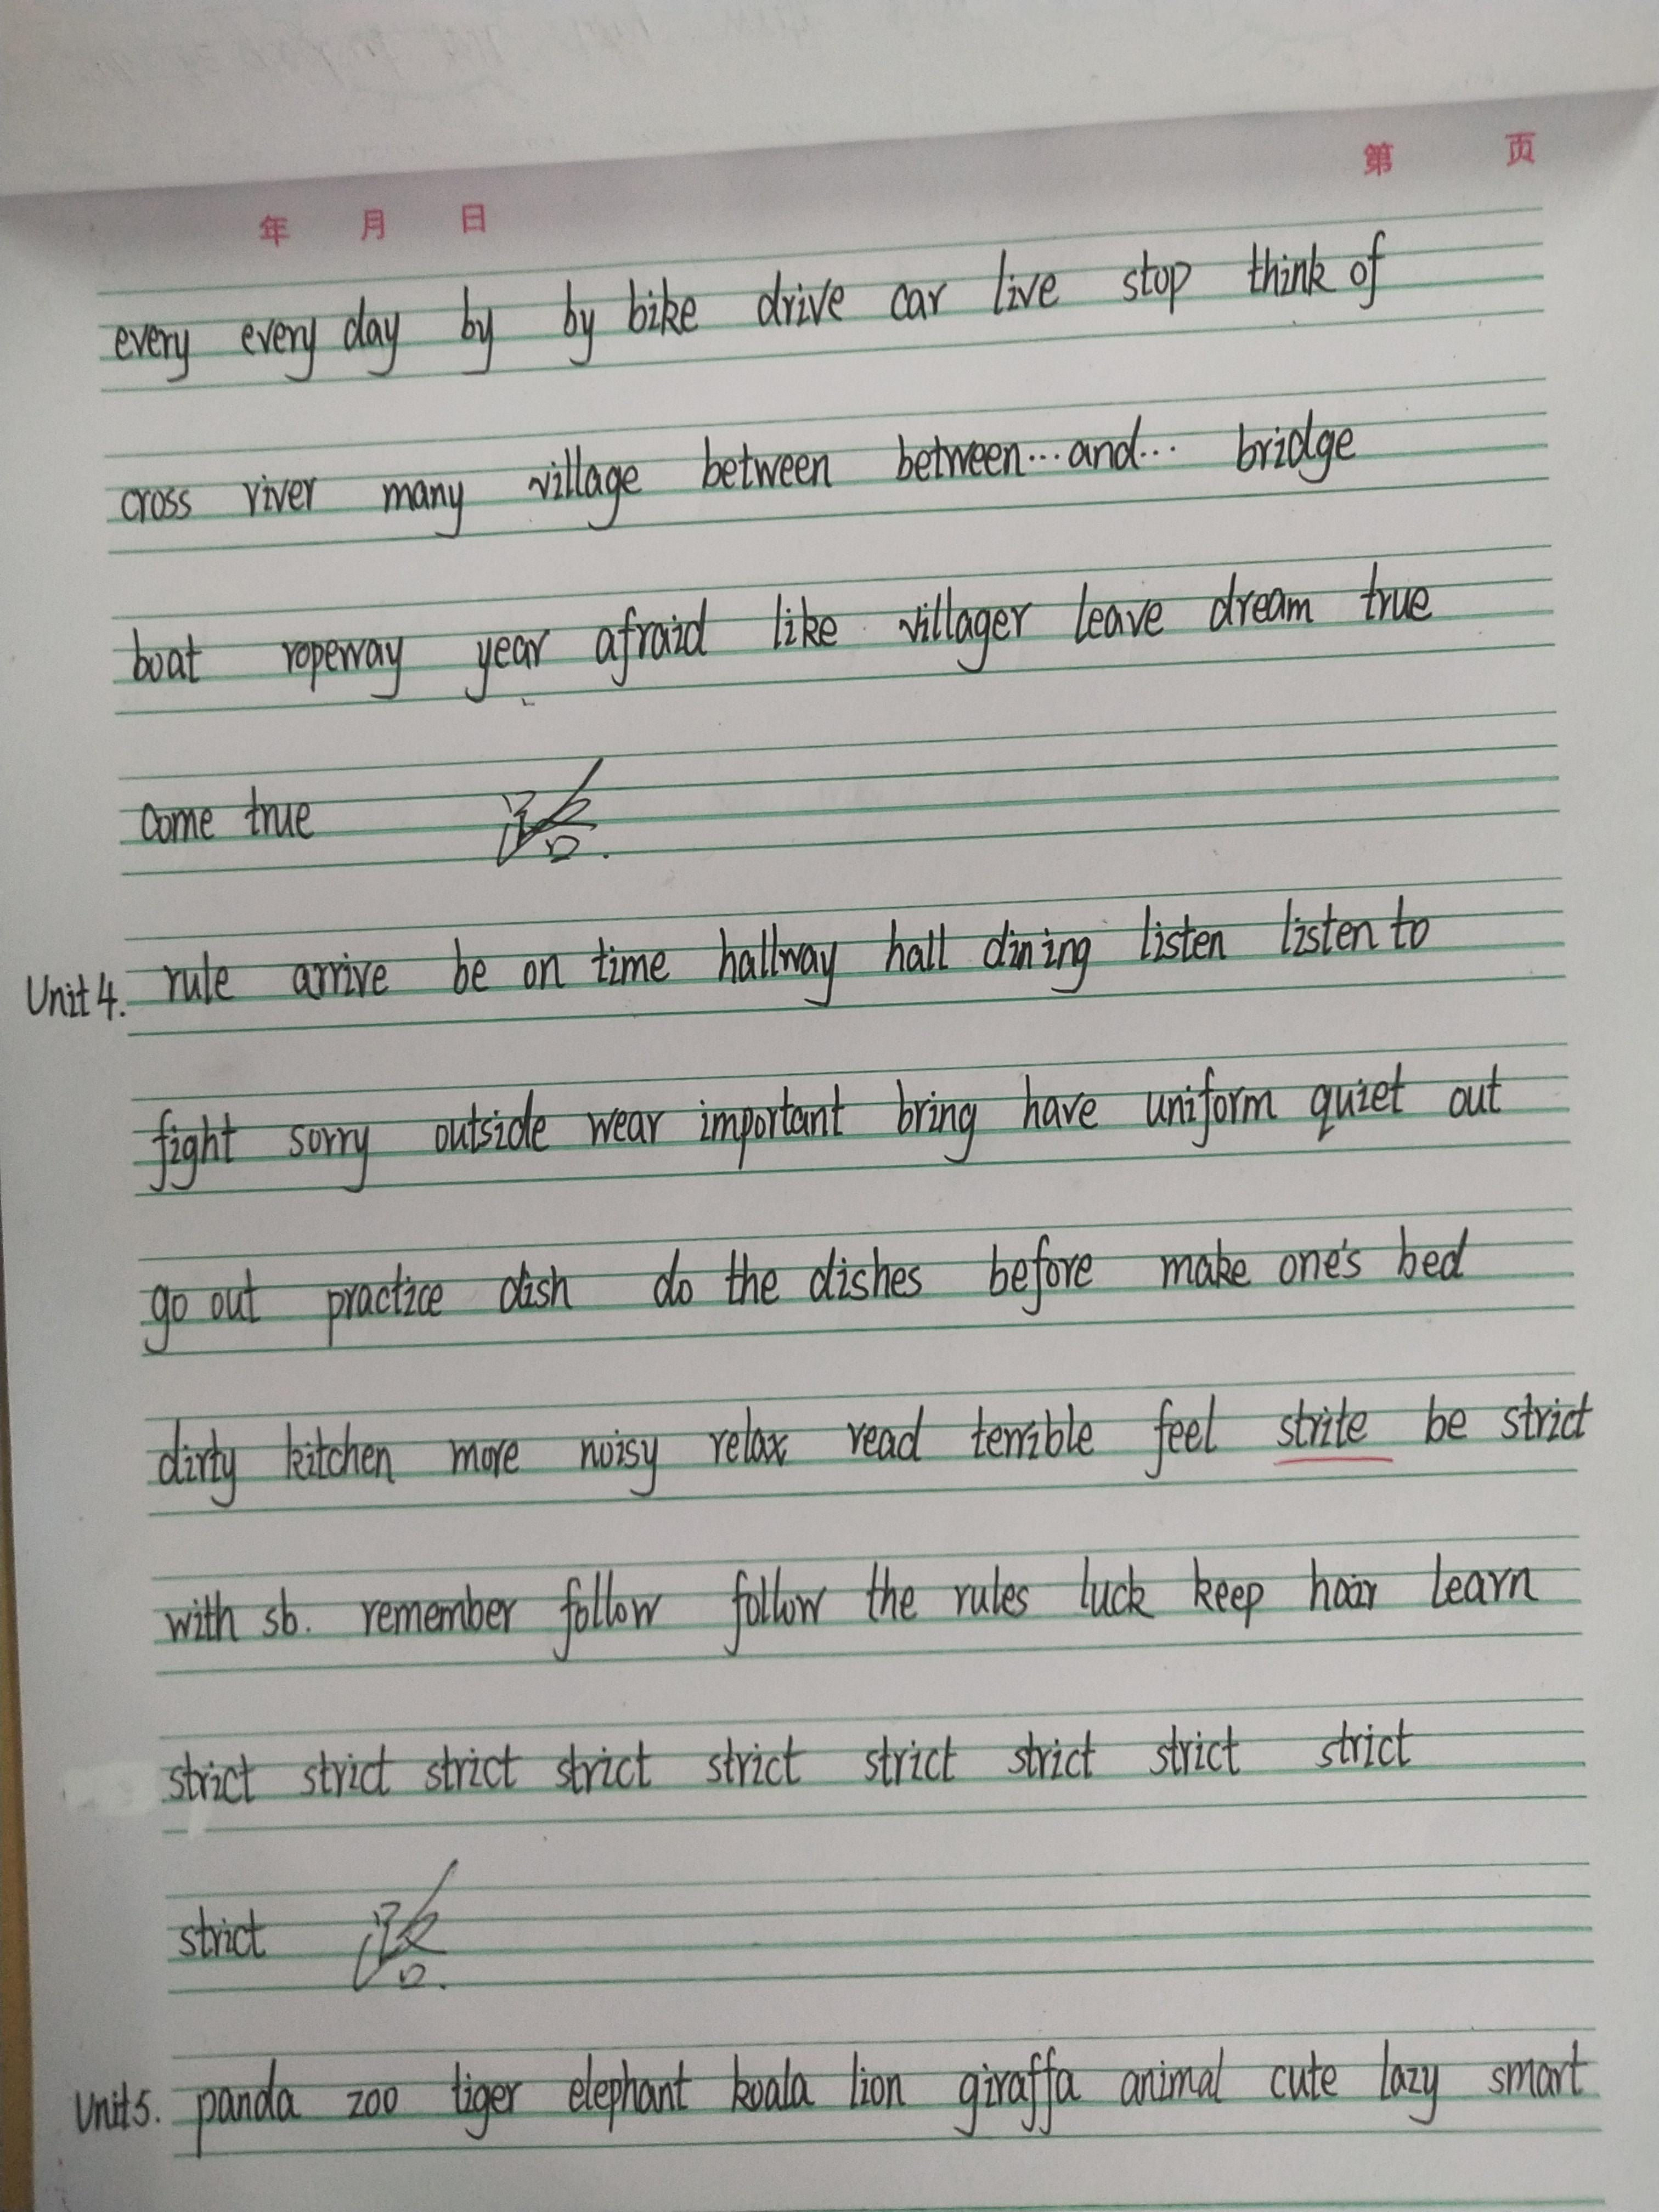 第 页
年 月 日
every every day by by bike drive car live stop think of
cross river many village between between…and… bridge
boat ropeway year afraid like villager leave dream true
come true
Unit 4. rule arrive be on time hallway hall dining listen listen to
fight sorry outside wear important bring have uniform quiet out
go out practice dish do the dishes before make one's bed
dirty kitchen more noisy relax read terrible feel strite be strict
with sb. remember follow follow the rules luck keep hair learn
strict strict strict strict strict strict strict strict strict
strict
Unit 5. panda zoo tiger elephant koala lion giraffa animal cute lazy smart